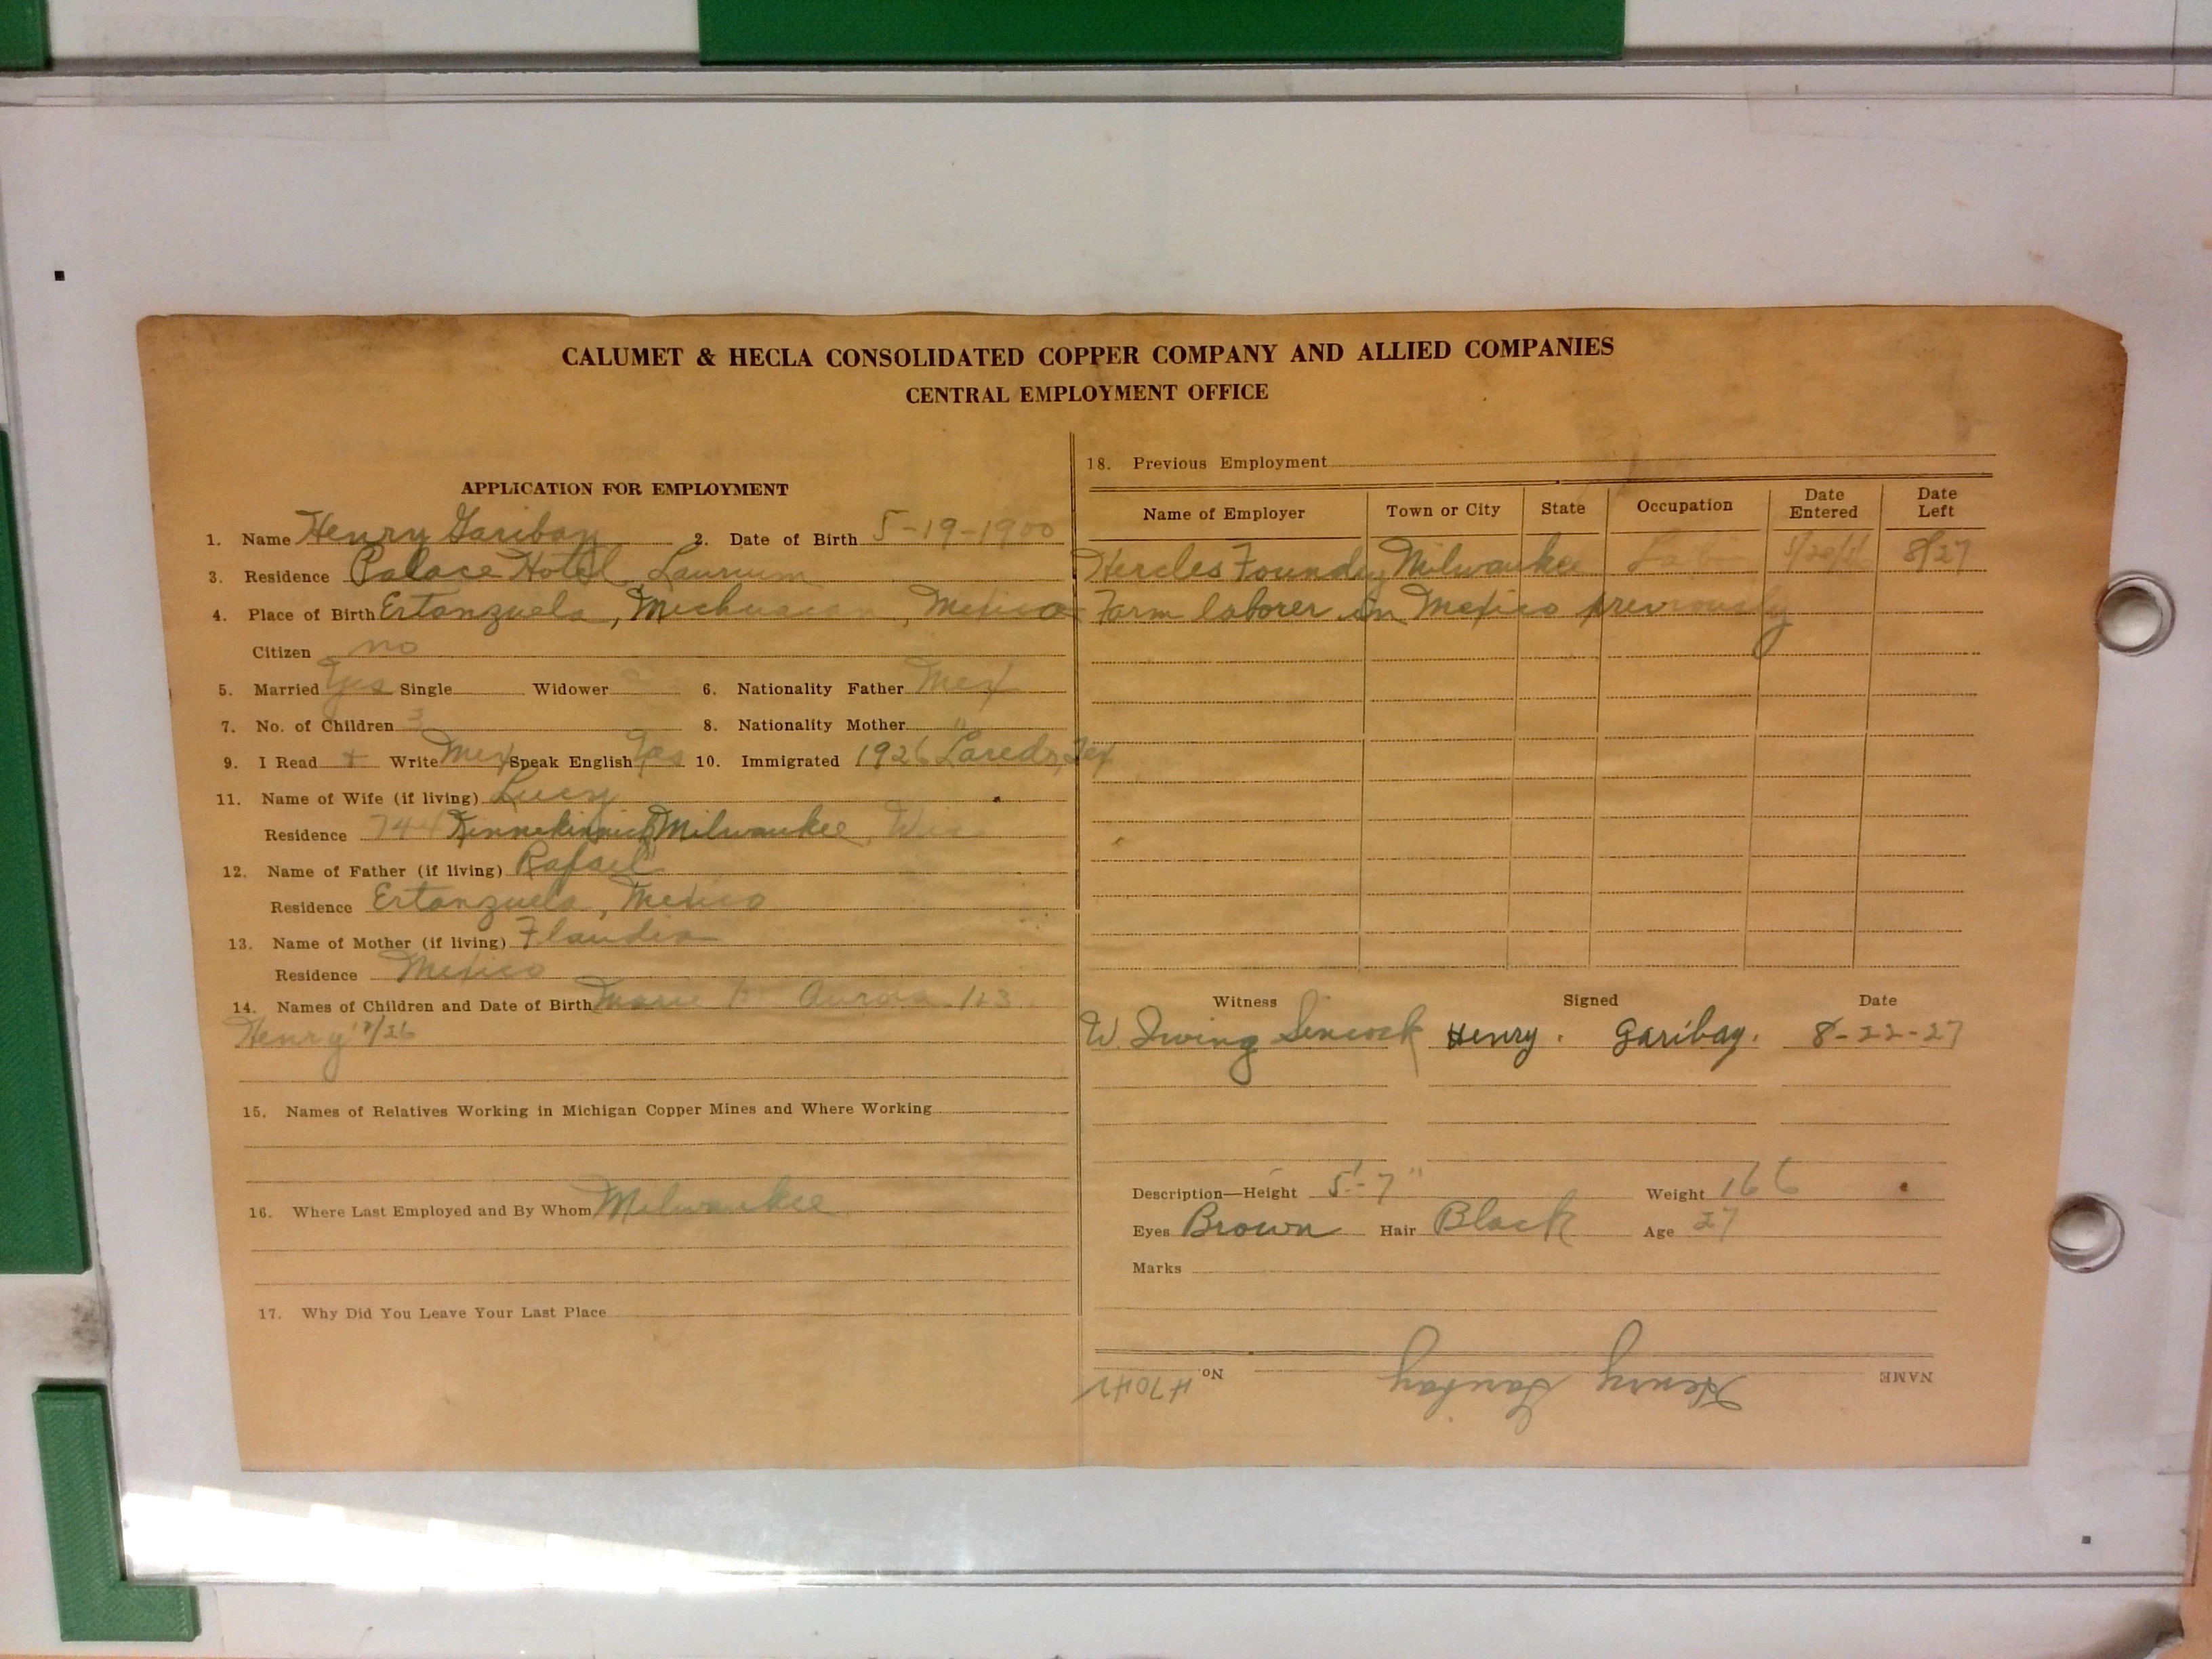 CALUMET & HECLA CONSOLIDATED COPPER COMPANY AND ALLIED COMPANIES
CENTRAL EMPLOYMENT OFFICE
APPLICATION FOR EMPLOYMENT
1. Name Henry Garibay 2. Date of Birth 5-19-1900
3. Residence Palace Hotel, Laurium
4. Place of Birth Estanzuela, Michuacan, Mexico
Citizen no
5. Married Yes Single Widower 6. Nationality Father Mex
7. No. of Children 3 8. Nationality Mother "
9. I Read + Write Mex Speak English Yes 10. Immigrated 1926 Laredo, Tex
11. Name of Wife (if living) Lucy
Residence 744 Kinnekinnick Milwaukee, Wis.
12. Name of Father (if living) Rafael
Residence Estanzuela, Mexico
13. Name of Mother (if living) Flaudia
Residence Mexico
14. Names of Children and Date of Birth Marie Aurora
Henry
15. Names of Relatives Working in Michigan Copper Mines and Where Working
16. Where Last Employed and By Whom Milwaukee
17. Why Did You Leave Your Last Place
18. Previous Employment
Name of Employer Town or City State Occupation Date Entered Date Left
Hercles Foundry Milwaukee 8/27
Farm laborer in Mexico previously
Witness Signed Date
W. Irving Sincock Henry. Garibay. 8-22-27
Description—Height 5'-7" Weight 166
Eyes Brown Hair Black Age 27
Marks
NAME Henry Garibay No. 47042